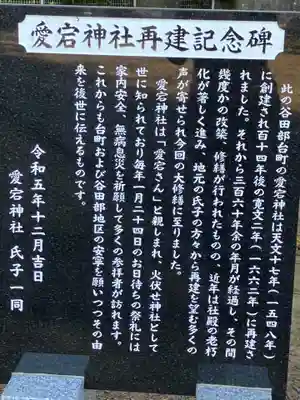 愛宕神社再建記念碑
此の谷田部台町の愛宕神社は天文十七年(一五四八年)
に創建され百十四年後の寛文二年(一六六二年)に再建さ
れました。それから三百六十年余の年月が経過し、その間
幾度かの改築、修繕が行われたものの、近年は社殿の老朽
化が著しく進み、地元の氏子の方々から再建を望む多くの
声が寄せられ今回の大修繕に至りました。
愛宕神社は「愛宕さん」と親しまれ、火伏せ神社として
世に知られており毎年一月二十四日のお日待ちの祭礼には
家内安全、無病息災を祈願して多くの参拝者が訪れます。
これからも台町および谷田部地区の安寧を願いつつその由
来を後世に伝えるものです。
令和五年十二月吉日
愛宕神社 氏子一同